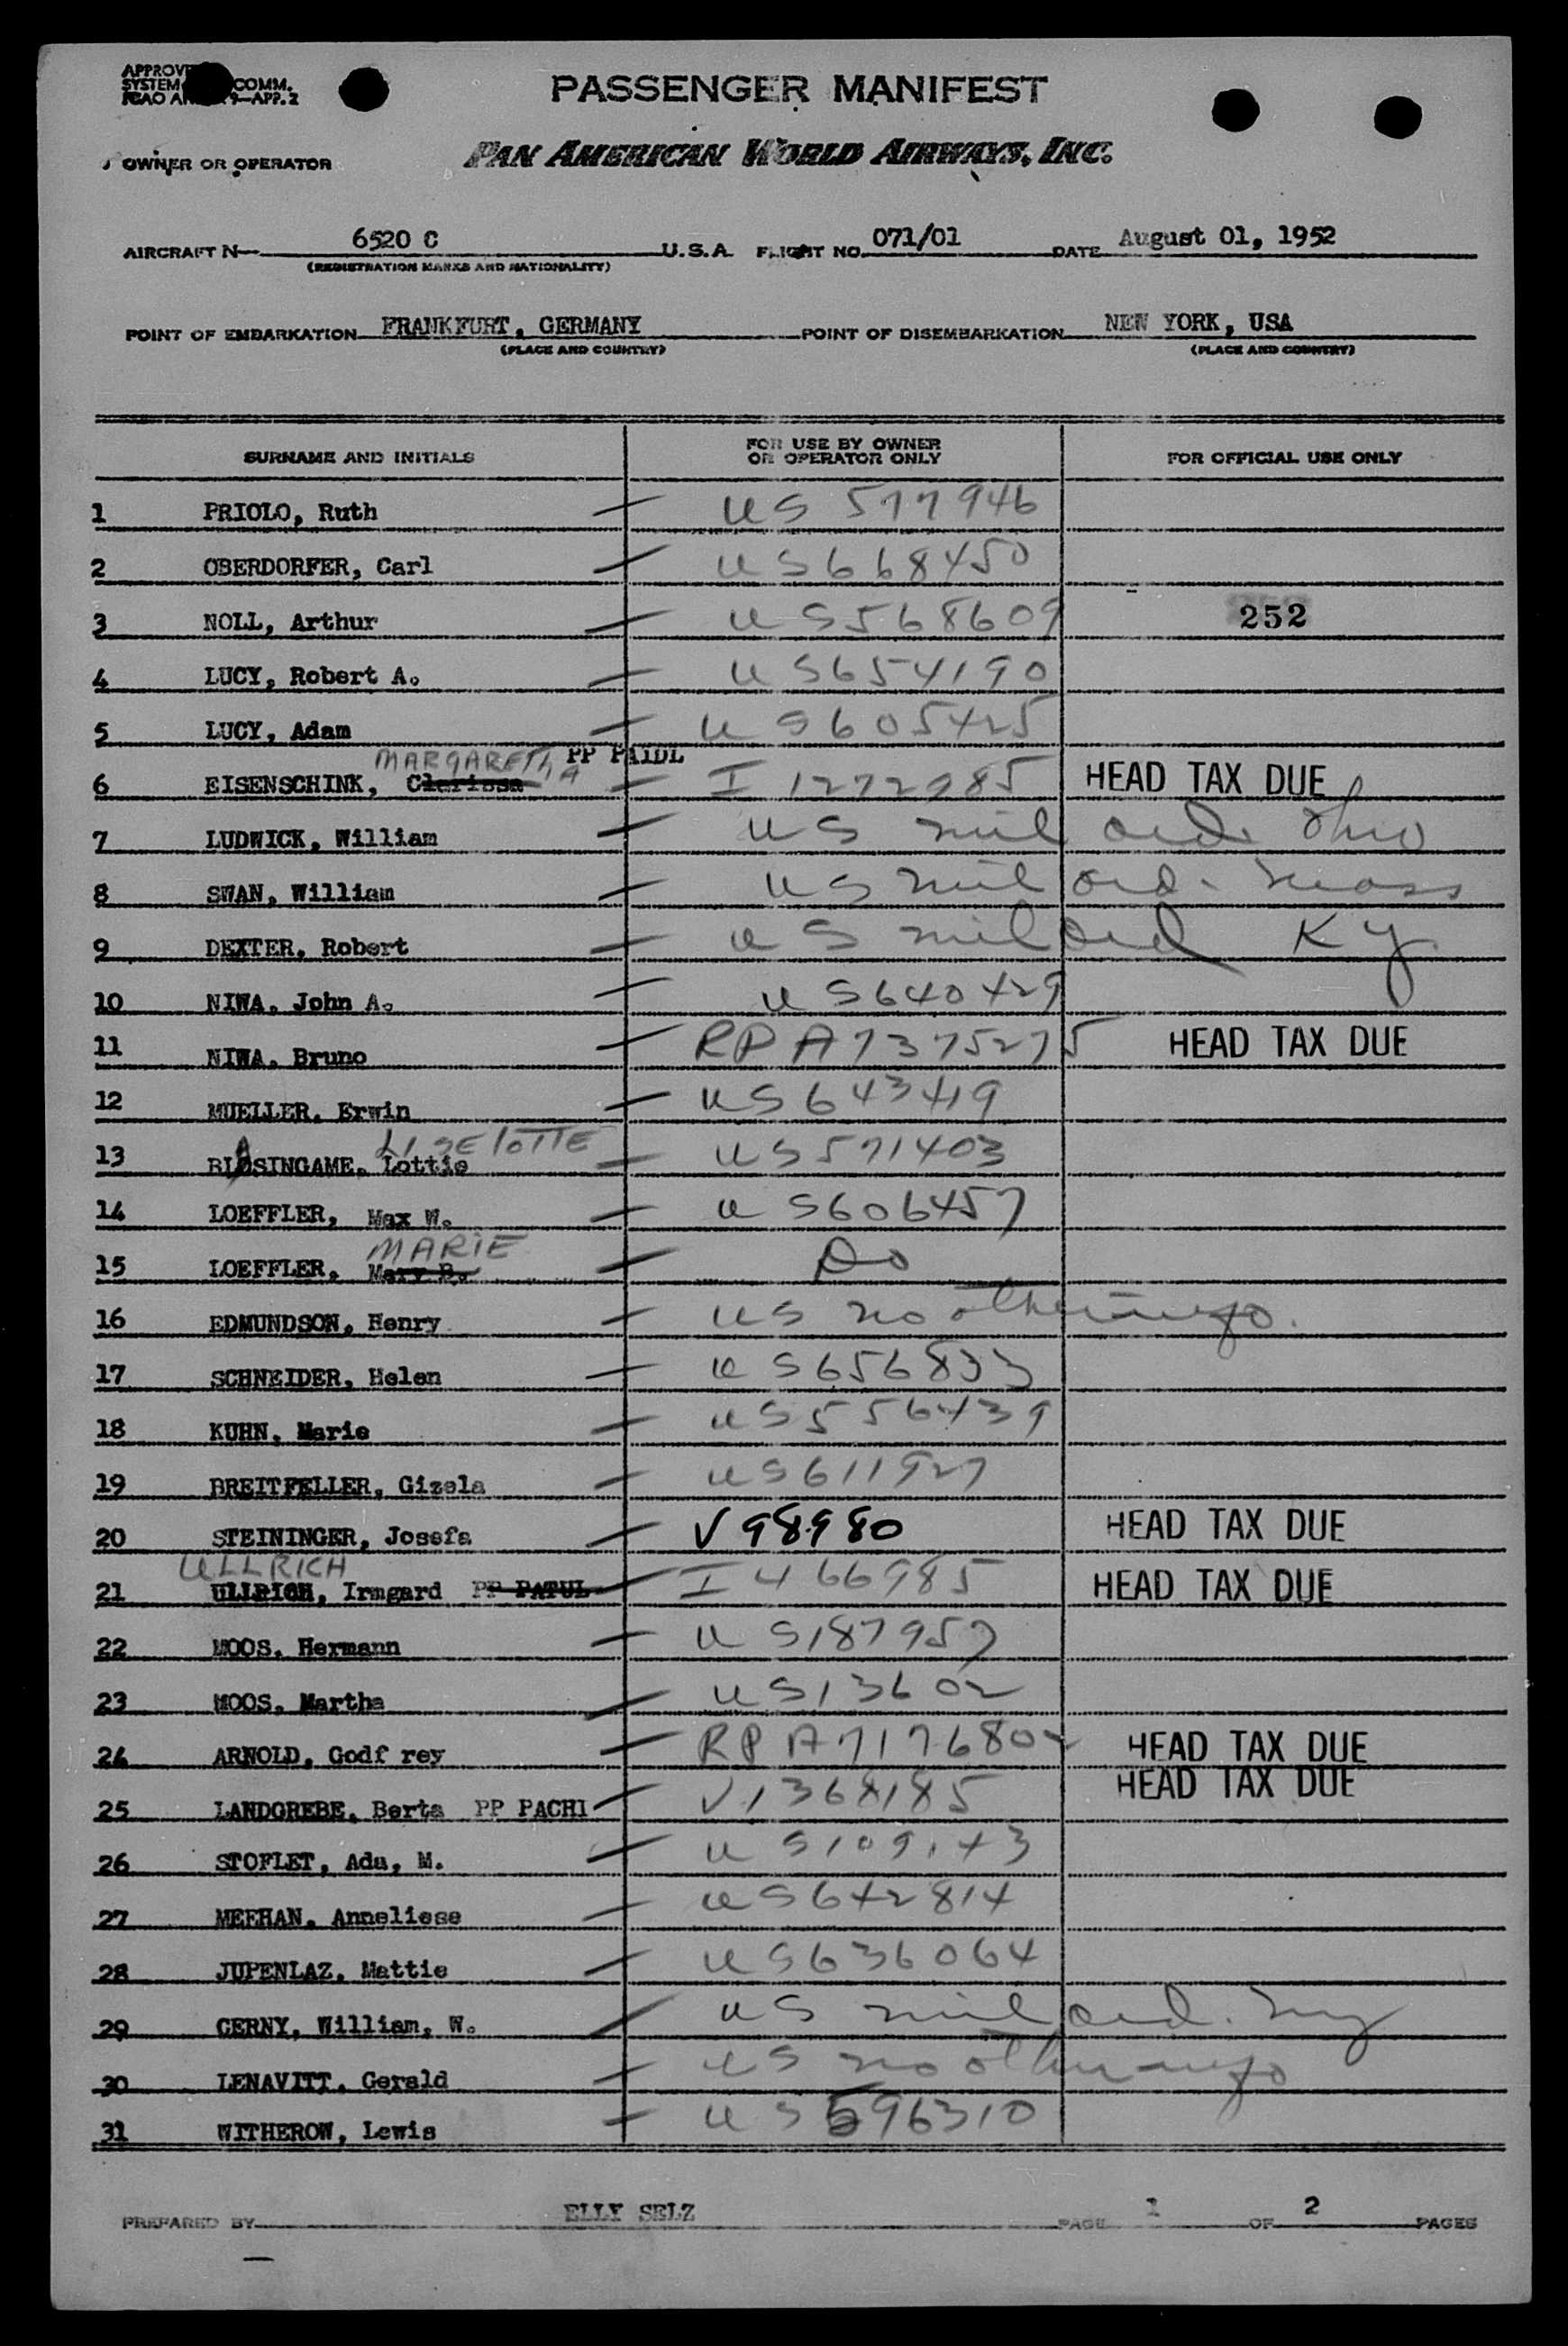 PASSENGER MANIFEST
OWNER OR OPERATOR PAN AMERICAN WORLD AIRWAYS, INC.
AIRCRAFT N 6520 C U.S.A. FLIGHT NO. 071/01 DATE August 01, 1952
(REGISTRATION MARKS AND NATIONALITY)
POINT OF EMBARKATION FRANKFURT, GERMANY POINT OF DISEMBARKATION NEW YORK, USA
(PLACE AND COUNTRY) (PLACE AND COUNTRY)
SURNAME AND INITIALS FOR USE BY OWNER OR OPERATOR ONLY FOR OFFICIAL USE ONLY
1 PRIOLO, Ruth — US 577946
2 OBERDORFER, Carl — US668450
3 NOLL, Arthur — US568609 252
4 LUCY, Robert A. — US654190
5 LUCY, Adam — US605425
MARGARETHA PP PAIDL
6 EISENSCHINK, Clarissa — I 1272985 HEAD TAX DUE
7 LUDWICK, William — US mil ord. Ohio
8 SWAN, William — US mil ord. Mass
9 DEXTER, Robert — US mil ord Ky
10 NIWA, John A. — US640429
11 NIWA, Bruno — RP A7375275 HEAD TAX DUE
12 MUELLER, Erwin — US643419
A LISELOTTE
13 BLOSINGAME, Lottie — US571403
14 LOEFFLER, Max W. — US606457
MARIE
15 LOEFFLER, Mary B. — Do
16 EDMUNDSON, Henry — US no other info.
17 SCHNEIDER, Helen — US656833
18 KUHN, Marie — US556439
19 BREITFELLER, Gizela — US611927
20 STEININGER, Josefa — V98980 HEAD TAX DUE
ULLRICH
21 ULLRICH, Irmgard PP PATUL — I 466985 HEAD TAX DUE
22 MOOS, Hermann — US187957
23 MOOS, Martha — US13602
24 ARNOLD, Godf rey — RP A7176802 HEAD TAX DUE
25 LANDGREBE, Berta PP PACHI — V1368185 HEAD TAX DUE
26 STOFLET, Ada, M. — US109143
27 MEEHAN, Anneliese — US642814
28 JUPENLAZ, Mattie — US636064
29 CERNY, William, W. — US mil ord. NY
30 LENAVITT, Gerald — US no other info
31 WITHEROW, Lewis — US596310
PREPARED BY ELLY SELZ PAGE 1 OF 2 PAGES